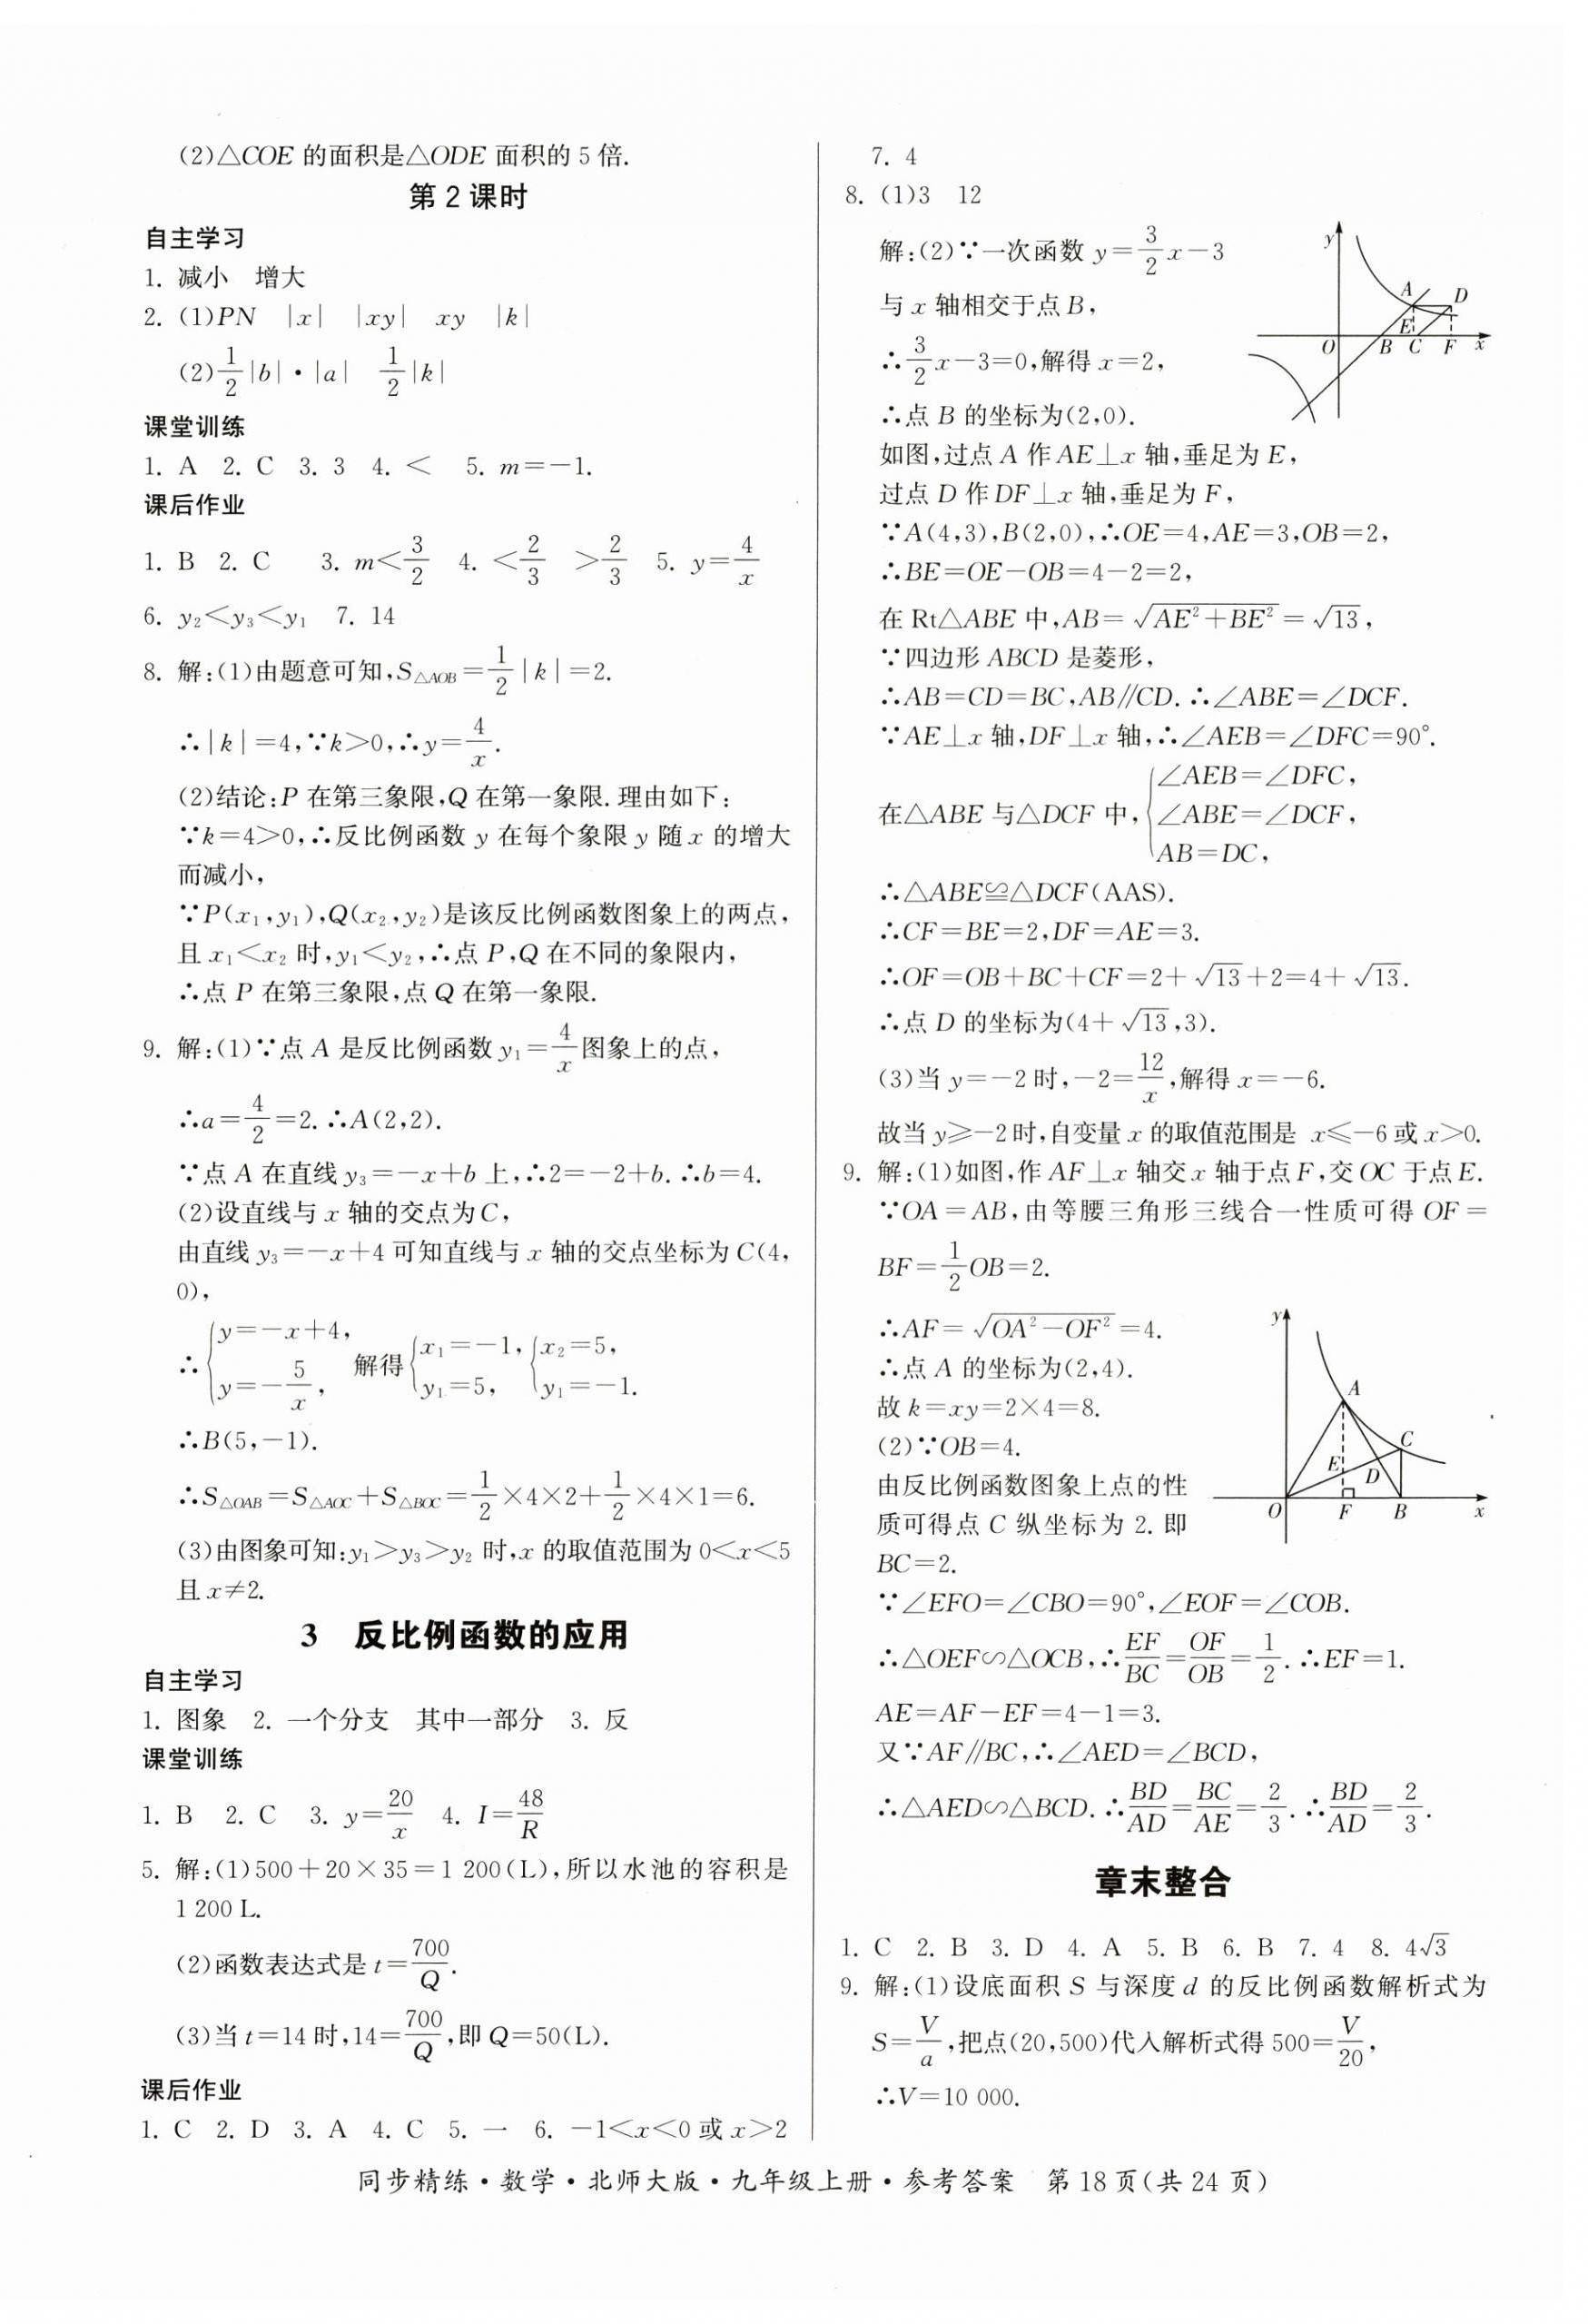 (2)△COE 的面积是△ODE 面积的 5 倍.
第 2 课时
自主学习
1. 减小 增大
2. (1)PN |x| |xy| xy |k|
(2)1/2|b|·|a| 1/2|k|
课堂训练
1. A 2. C 3. 3 4. < 5. m=-1.
课后作业
1. B 2. C 3. m<3/2 4. <2/3 >2/3 5. y=4/x
6. y₂<y₃<y₁ 7. 14
8. 解:(1)由题意可知,S△AOB=1/2|k|=2.
∴|k|=4,∵k>0,∴y=4/x.
(2)结论:P 在第三象限,Q 在第一象限.理由如下:
∵k=4>0,∴反比例函数 y 在每个象限 y 随 x 的增大
而减小,
∵P(x₁,y₁),Q(x₂,y₂)是该反比例函数图象上的两点,
且 x₁<x₂ 时,y₁<y₂,∴点 P,Q 在不同的象限内,
∴点 P 在第三象限,点 Q 在第一象限.
9. 解:(1)∵点 A 是反比例函数 y₁=4/x图象上的点,
∴a=4/2=2.∴A(2,2).
∵点 A 在直线 y₃=-x+b 上,∴2=-2+b.∴b=4.
(2)设直线与 x 轴的交点为 C,
由直线 y₃=-x+4 可知直线与 x 轴的交点坐标为 C(4,
0),
∴{y=-x+4, y=-5/x, 解得{x₁=-1, y₁=5, {x₂=5, y₁=-1.
∴B(5,-1).
∴S△OAB=S△AOC+S△BOC=1/2×4×2+1/2×4×1=6.
(3)由图象可知:y₁>y₃>y₂ 时,x 的取值范围为 0<x<5
且 x≠2.
3 反比例函数的应用
自主学习
1. 图象 2. 一个分支 其中一部分 3. 反
课堂训练
1. B 2. C 3. y=20/x 4. I=48/R
5. 解:(1)500+20×35=1 200(L),所以水池的容积是
1 200 L.
(2)函数表达式是 t=700/Q.
(3)当 t=14 时,14=700/Q,即 Q=50(L).
课后作业
1. C 2. D 3. A 4. C 5. 一 6. -1<x<0 或 x>2
7. 4
8. (1)3 12
解:(2)∵一次函数 y=3/2x-3
与 x 轴相交于点 B,
∴3/2x-3=0,解得 x=2,
∴点 B 的坐标为(2,0).
y A D E O B C F x
如图,过点 A 作 AE⊥x 轴,垂足为 E,
过点 D 作 DF⊥x 轴,垂足为 F,
∵A(4,3),B(2,0),∴OE=4,AE=3,OB=2,
∴BE=OE-OB=4-2=2,
在 Rt△ABE 中,AB=√(AE²+BE²)=√13,
∵四边形 ABCD 是菱形,
∴AB=CD=BC,AB∥CD.∴∠ABE=∠DCF.
∵AE⊥x 轴,DF⊥x 轴,∴∠AEB=∠DFC=90°.
在△ABE 与△DCF 中,{∠AEB=∠DFC, ∠ABE=∠DCF, AB=DC,
∴△ABE≌△DCF(AAS).
∴CF=BE=2,DF=AE=3.
∴OF=OB+BC+CF=2+√13+2=4+√13.
∴点 D 的坐标为(4+√13,3).
(3)当 y=-2 时,-2=12/x,解得 x=-6.
故当 y≥-2时,自变量 x 的取值范围是 x≤-6 或 x>0.
9. 解:(1)如图,作 AF⊥x 轴交 x 轴于点 F,交 OC 于点 E.
∵OA=AB,由等腰三角形三线合一性质可得 OF=
BF=1/2OB=2.
∴AF=√(OA²-OF²)=4.
∴点 A 的坐标为(2,4).
故 k=xy=2×4=8.
(2)∵OB=4.
由反比例函数图象上点的性
质可得点 C 纵坐标为 2.即
BC=2.
y A C E D O F B x
∵∠EFO=∠CBO=90°,∠EOF=∠COB.
∴△OEF∽△OCB,∴EF/BC=OF/OB=1/2.∴EF=1.
AE=AF-EF=4-1=3.
又∵AF∥BC,∴∠AED=∠BCD,
∴△AED∽△BCD.∴BD/AD=BC/AE=2/3.∴BD/AD=2/3.
章末整合
1. C 2. B 3. D 4. A 5. B 6. B 7. 4 8. 4√3
9. 解:(1)设底面积 S 与深度 d 的反比例函数解析式为
S=V/a,把点(20,500)代入解析式得 500=V/20,
∴V=10 000.
同步精练·数学·北师大版·九年级上册·参考答案 第 18 页(共 24 页)